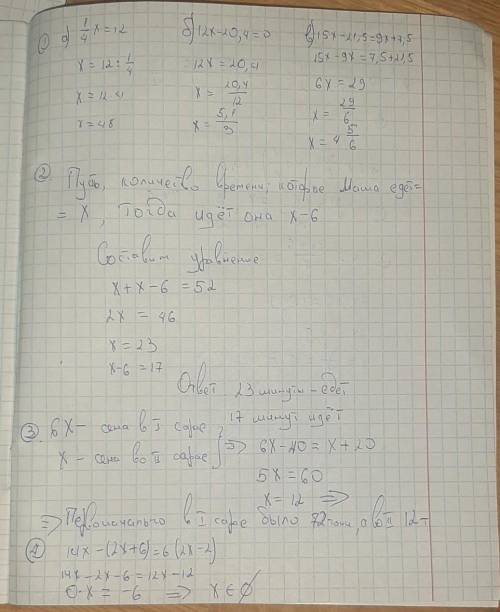 ① а) 1/4 x = 12 б) 12x - 20,4 = 0 в) 15x - 21,5 = 9x + 7,5
x = 12 : 1/4 12x = 20,4 15x - 9x = 7,5 + 21,5
x = 12 · 4 x = 20,4/12 6x = 29
x = 48 x = 5,1/3 x = 29/6
x = 4 5/6
② Пусть, количество времени, которое Маша едет =
= X, тогда идёт она x-6
Составим уравнение
x + x - 6 = 52
2x = 46
x = 23
x - 6 = 17
Ответ 23 минуты - едет
17 минут идёт
③ 6X - сена в I сарае
x - сена во II сарае ⇒ 6x - 40 = x + 20
5x = 60
x = 12 ⇒
⇒ Первоначально в I сарае было 72 тонн, а во II 12 т
④ 14x - (2x + 6) = 6(2x - 2)
14x - 2x - 6 = 12x - 12
0·x = -6 ⇒ x ∈ ∅